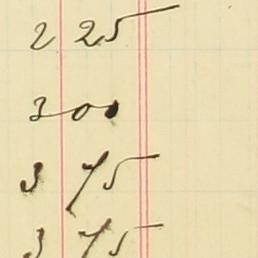 2 25
3 00
3 75
3 75